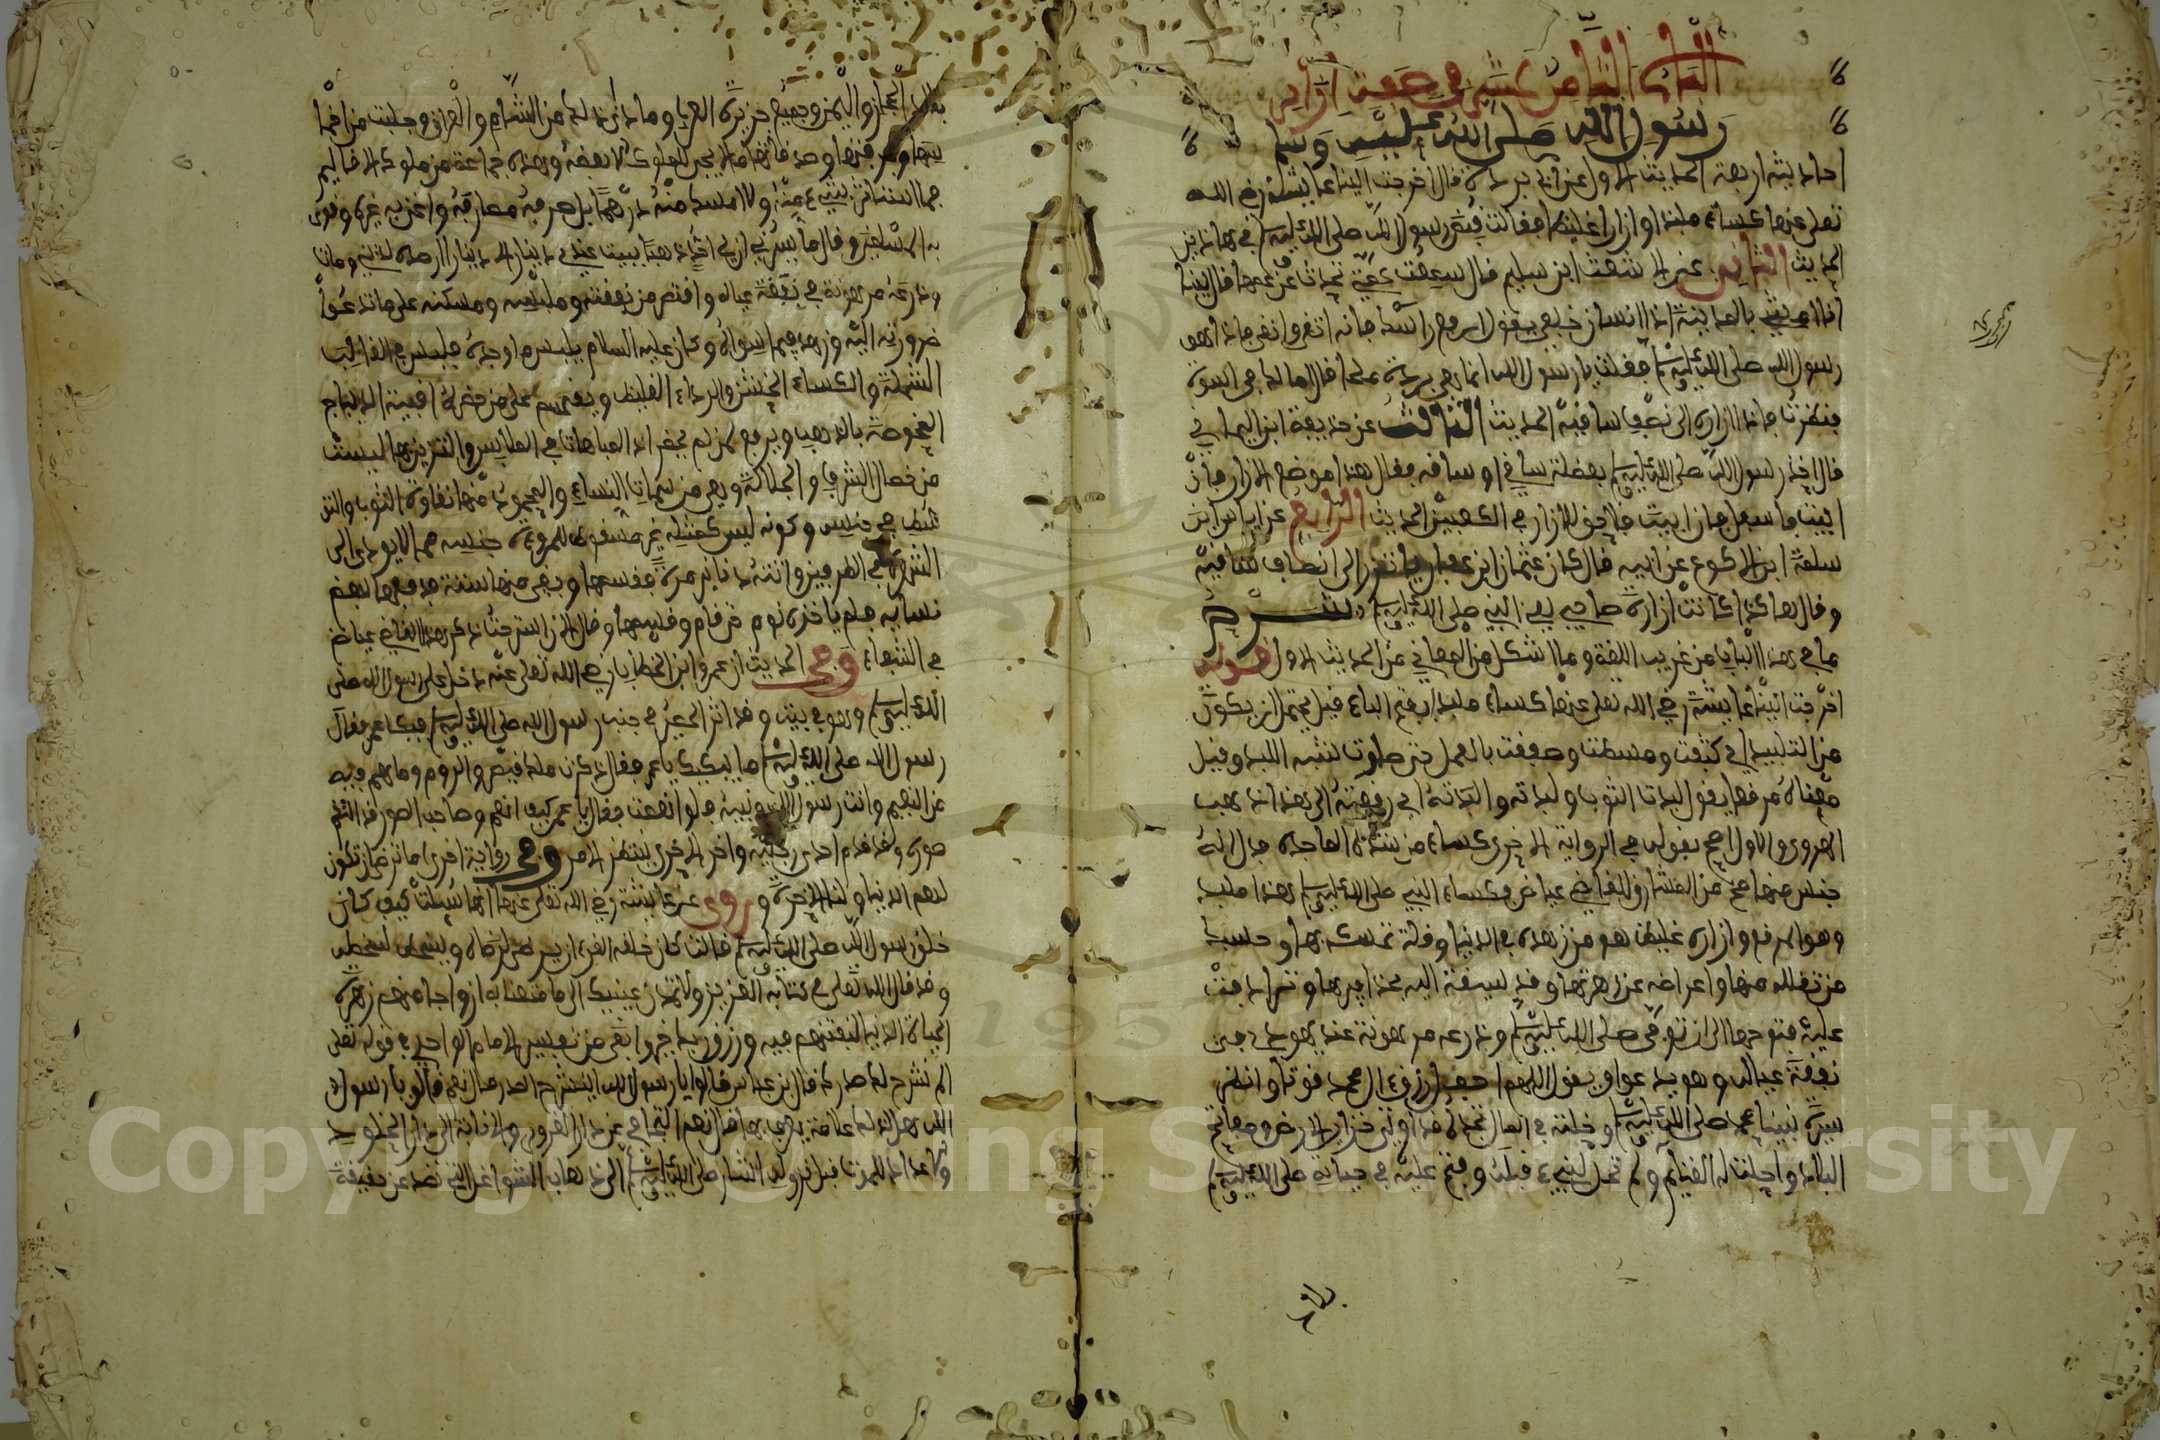 الباب الثامن عشر في صفة ازار
رسول الله صلى الله عليه وسلم
احاديثه اربعة الحديث الاول عن ابي بردة قال اخرجت الينا عايشة رضي الله
تعلى عنها كساء ملبدا وازارا غليظا فقالت قبض رسول الله صلى الله عليه وسلم في هاذين
الحديث الثاني عن الاشعث ابن سليم قال سمعت عمتي تحدث عن عمها قال بينا
انا امشي بالمدينة اذا انسان خلفي يقول ارفع ازارك فانه اتقى وانقى فاذا هو
رسول الله صلى الله عليه وسلم فقلت يا رسول الله انما هي بردة ملحا قال اما لك في اسوة
فنظرت فاذا ازاره الى نصف ساقيه الحديث الثالث عن حذيفة ابن اليماني
قال اخذ رسول الله صلى الله عليه وسلم بعضلة ساقي او ساقه فقال هذا موضع الازار فان
ابيت فاسفل فان ابيت فلا حق للازار في الكعبين الحديث الرابع عن اياس ابن
سلمة ابن الاكوع عن ابيه قال كان عثمان ابن عفان ياتزر الى انصاف ساقيه
وقال هاكذا كانت ازارة صاحبي يعني النبي صلى الله عليه وسلم شرح
ما في هذا الباب من غريب اللغة وما اشكل من المعاني من الحديث الاول قوله
اخرجت الينا عايشة رضي الله تعلى عنها كساء ملبدا بفتح الباء قيل يحتمل ان يكون
من التلبيد اي كثفت ومسطت وصفقت بالعمل حتى صارت تشبه اللبد وقيل
معناه مرقعا يقول لبدت الثوب ولبدته والبدته اي رقعته الى هذا ذهب
الهروي والاول اصح لقوله في الرواية الاخرى كساء من هذه الملبدة
عياض وكساء النبي صلى الله عليه وسلم هذا ملبد
وهو المرقع وازاره غليظ هو من زهده في الدنيا وقلة تمسكه بها وحسبك
من تقلله منها واعراضه عن زهرتها وقد سيقت اليه بحذافيرها وترادفت
عليه فتوحها الى ان توفي صلى الله عليه وسلم ودرعه مرهونة عند يهودي في
نفقة عياله وهو يدعوا ويقول اللهم اجعل رزق ءال محمد قوتا وانظر
سيرة نبينا محمد صلى الله عليه وسلم وخلقه في المال تجده قد اوتي خزاين الارض ومفاتح
البلاد واحلت له الغنايم ولم تحل لنبيء قبله وفتح عليه في حياته صلى الله عليه وسلم
بلاد الحجاز واليمن وجميع جزيرة العرب وما دانى ذلك من الشام والعراق وجلبت من اخماسها
وجزيتها وصدقاتها ما لا يجبى للملوك الا بعضه وهادته جماعة من ملوك الاقاليم
فما استاثر بشيء منه ولا امسك منه درهما بل صرفه مصارفه واغنى به غيره وقوى
به المسلمين وقال ما يسرني ان لي احدا ذهبا يبيت عندي دينار الا دينارا ارصده لديني ومات
ودرعه مرهونة في نفقة عياله واقتصر من نفقته وملبسه ومسكنه على ما تدعوا
ضرورته اليه وزهد فيما سواه وكان عليه السلام يلبس ما وجده فيلبس في الغالب
الشملة والكساء الخشن والرداء الغليظ ويقسم على من حضره اقبية الديباج
المخوصة بالذهب ويرفع لمن لم يحضر اذ المباهات في الملابس والتزين بها ليست
من خصال الشرف والجلالة وهي من سمات النساء والمحمود منها نقاوة الثوب والتوسط
في جنسه وكونه لبس مثله غير مسقط للمروءة جنسه مما لا يودي الى
الشهرة في الطرفين دنانير مرة فقسمها وبقي منها ستة فدفعها لبعض
نسايه فلم ياخذه نوم حتى قام وقسمها وقال الان استرحت ذكر هذا القاضي عياض
في الشفاء وفي الحديث ان عمر ابن الخطاب رضي الله تعلى عنه دخل على رسول الله صلى
الله عليه وسلم وهو في بيت وقد اثر الحصير في جنب رسول الله صلى الله عليه وسلم فبكا عمر فقال
رسول الله صلى الله عليه وسلم ما يبكيك يا عمر فقال ذكرت ملك قيصر والروم وما هم فيه
من النعيم وانت رسول الله ونبيه فلو انعمت فقال يا عمر كيف انعم وصاحب الصور قد التقم
صوره وقد قدم احدى رجليه واخر الاخرى ينتظر الامر وفي رواية اخرى اما ترضى ان تكون
لهم الدنيا ولنا الاخرة وروي عن عايشة رضي الله تعلى عنها انها سيلت كيف كان
خلق رسول الله صلى الله عليه وسلم قالت كان خلقه القرءان يرضى لرضاه ويسخط لسخطه
وقد قال الله تعلى في كتابه العزيز ولا تمدن عينيك الى ما متعنا به ازواجا منهم زهرة
الحياة الدنيا لنفتنهم فيه ورزق ربك خير وابقى من تفسير الامام الواحدي في قوله تعلى
الم نشرح لك صدرك قال ابن عباس قالوا يا رسول الله اينشرح الصدر قال نعم قالوا يا رسول
الله هل لذلك علامة يعرف بها قال نعم التجافي عن دار الغرور والانابة الى دار الخلود
والاعداد للموت قبل نزوله اشار صلى الله عليه وسلم الى ذهاب الشواغل التي تصد عن حقيقة